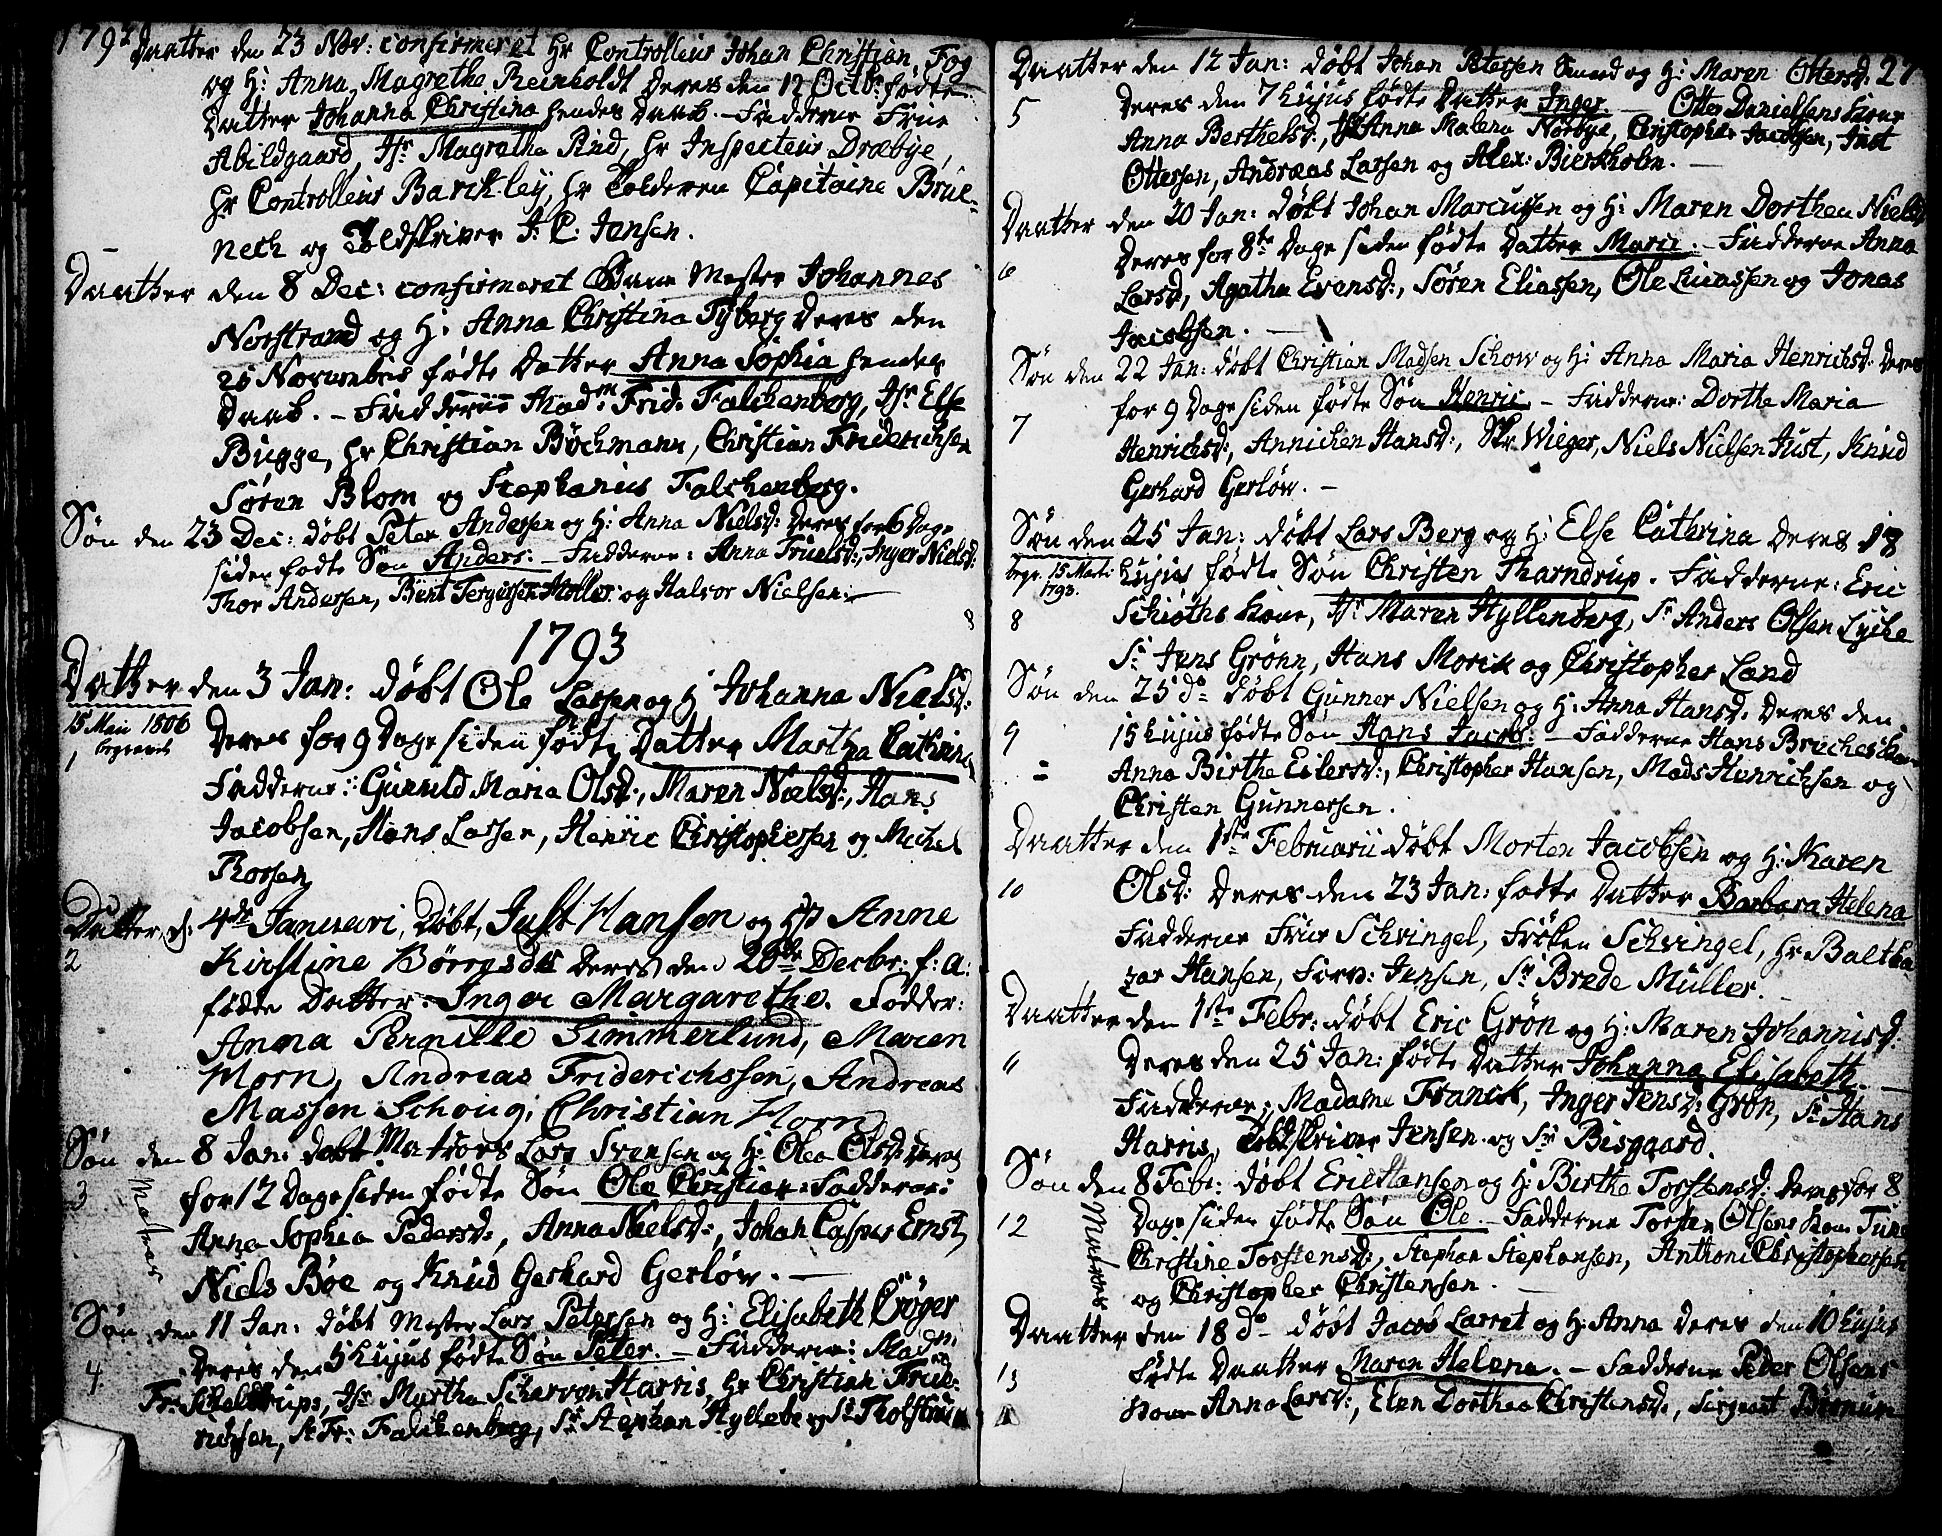 1792
Daatter den 23 Nov: confirmeret Hr Controlleur Johan Christian Fog
og H: Anna Magretha Reinholdt deres den 12 Octbr fødte
Datter Johanna Christina hendes Daab. – Fadderne Frue
Abildgaard, Jfr Magretha Rud, Hr Inspecteur Dræbye,
Hr Controlleur Barckley, Hr Tolderen Capitaine Brue-
nech og Toldskriver J: C: Jensen.
Daatter den 8 Dec: confirmeret Mester Johannes
Norstrand og H: Anna Christina Tyberg deres den
Novembris fødte Datter Anna Sophia hendes
Daab. – Fadderne Madme Frid: Falckenberg, Jfr Else
Bugge, Hr Christian Bøchmann, Christian Friderichsen
Søren Blom og Stephanius Falckenberg.
Søn den 23 Dec: døbt Peter Andersen og H: Anna Nielsd: deres for 6 Dage
siden fødte Søn Anders. – Fadderne: Anna Truelsd:, Inger Nielsd:
Thor Andersen, Bent Torgersen Møller og Halvor Nielsen. –
1793
Datter den 3 Jan: døbt Ole Larsen og H: Johanna Nielsd:
15 Maii 1806
begravet
1
Deres for 9 Dage siden fødte Datter Martha Cathrina
Fadderne: Gunnild Maria Olsd:, Maren Nielsd:, Hans
Jacobsen, Hans Larsen, Henric Christophersen og Michel
Thorsen
Datter d: 4de Januari, Døbt, Just Hansen og H: Anne
2
Kirstine Børresd deres den 28de Decbr: f: a:
fødte Datter Inger Margarethe. Fadder:
Anna Pernille Simmerlund, Maren
Horn, Andreas Friderichssen, Andreas
Massen Schoug, Christian Horn
Søn den 8 Jan: døbt Matros Lars Svensen og H: Olea Olsd: deres
3
Matros
for 12 Dage siden fødte Søn Ole Christian. Fadderne:
Anna Sophia Pedersd:, Anna Nielsd:, Johan Casper Ernst,
Niels Boe og Knud Gerhard Gerløv. –
Søn den 11 Jan: døbt Mester Lars Petersen og H: Elisabeth Crøger
Deres den 5 hujus fødte Søn Peter. – Fadderne: Madme
4
Fr: Skeldrups, Jfr Martha Harris, Hr Christian Frie-
richsen, Fr: Falckenberg, Sr Stephan Hyllebe og Sr Tholstrup
27
Daatter den 12 Jan: døbt Johan Petersen Smed og H: Maren Ottersd:
5
Deres den 7 hujus fødte Datter Inger. – Otter Danielsens Kone
Anna Berthelsd:, Jfr Anna Malena Nørbye, Christopher Jacobsen, Just
Ottersen, Andreas Larsen og Alex: Bierkholm. –
Daatter den 20 Jan: døbt Johan Marcussen og H: Maren Dorthea Nielsd
6
Deres for 8te Dage siden fødte Datter Marie. – Fadderne Anna
Larsd, Agatha Evensd:, Søren Eliassen, Ole Lucassen og Jonas
Jacobsen. –
Søn den 22 Jan: døbt Christian Madsen Schow og H: Anna Maria Henrichsd: deres
7
for 9 Dage siden fødte Søn Henric. – Fadderne: Dorthe Maria
Henrichsd:, Annichen Hansd:, Wieger, Niels Nielsen Just, Knud
Gerhard Gerløv. –
Søn den 25 Jan: døbt Lars Berg og H: Else Cathrina deres 18
begr. 15 Marti
1793.
8
hujus fødte Søn Christen Tharndrup. Fadderne: Eric
Schiøths Kone, Jfr Maren Hyllenberg, Sr Anders Olsen Lyche
Sr Jens Grøhn, Hans Morik og Christopher Land
Søn den 25 do døbt Gunner Nielsen og H: Anna Hansd: deres den
9
15 hujus fødte Søn Hans Jacob. – Fadderne Hans Bruches Kone
Anna Birthe Eilersd:, Christopher Hansen, Mads Henrichsen og
Christen Gunnersen.
Daatter den 1ste Februarii døbt Morten Jacobsen og H: Karen
10
Olsd: deres den 23 Jan: fødte Datter Barbara Helena
Fadderne Frue Schvingel, Frøken Schvingel, Hr Baltha
zar Hansen, Forv: Jensen, Sr Brede Müller. –
Daatter den 1ste Febr: døbt Eric Grøn og H: Maren Johannisd:
11
Deres den 25 Jan: fødte Datter Johanna Elisabeth. –
Fadderne: Madame Franck, Inger Jensd: Grøn, Sr Hans
Harris, Toldskriver Jensen og Sr Bisgaard.
Søn den 8 Febr: døbt Eric Hansen og H: Birthe Torstensd: deres for 8
12
Matros
Dage siden fødte Søn Ole. – Fadderne Torsten Olsens Kone
Christine Torstensd:, Stephan Stephansen, Anthoni Christophersen
og Christopher Christensen.
Daatter den 18 do døbt Jacob Larret og H: Anna deres den 10 hujus
13
fødte Daatter Maren Helena. – Fadderne Peder Olsens
Kone Anna Larsd:, Elen Dorthea Christensd:, Sergeant